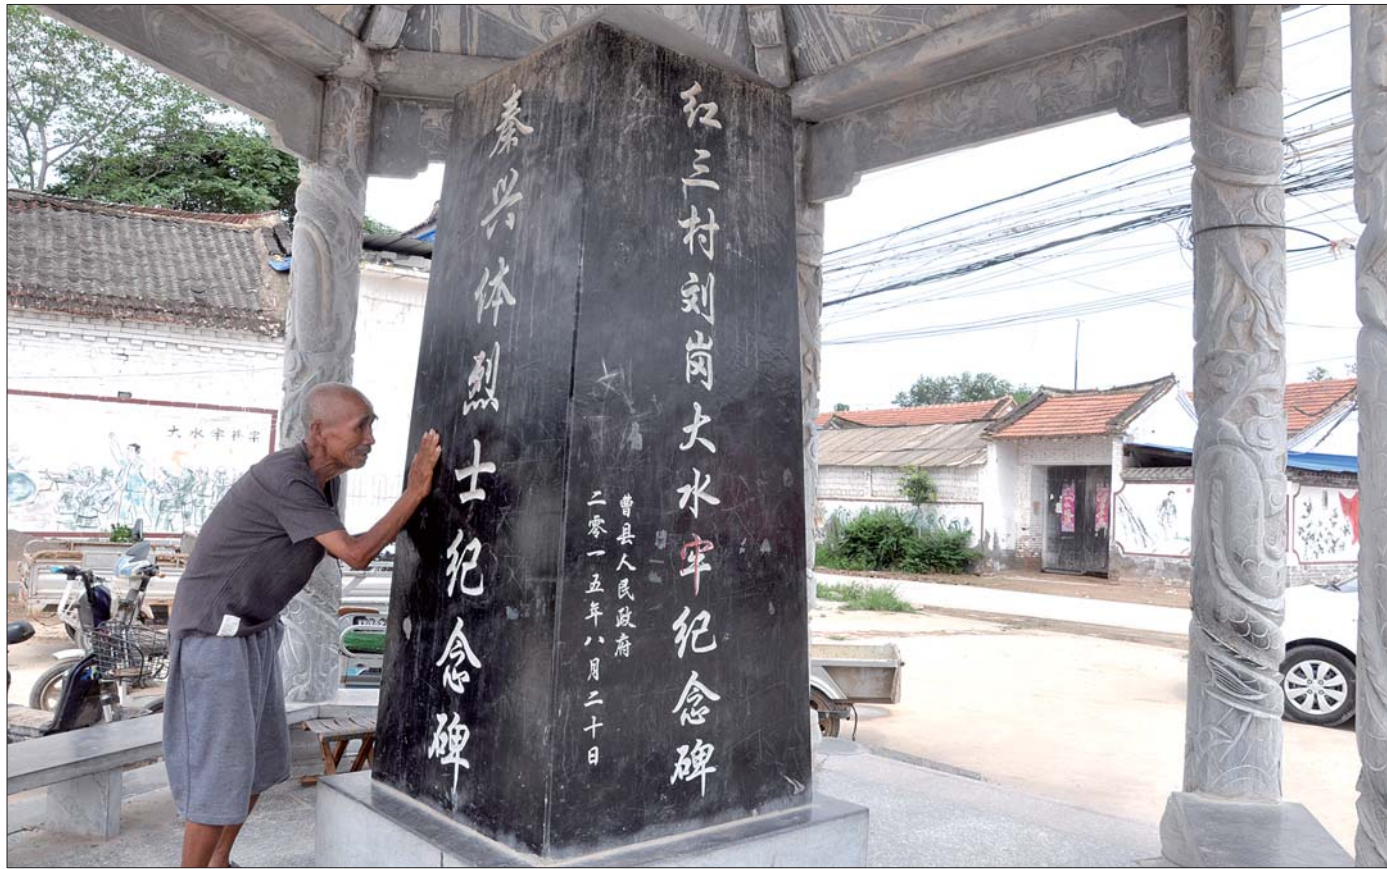 红三村刘岗大水牢纪念碑
曹县人民政府
二零一五年八月二十日
秦兴体烈士纪念碑
大水牢